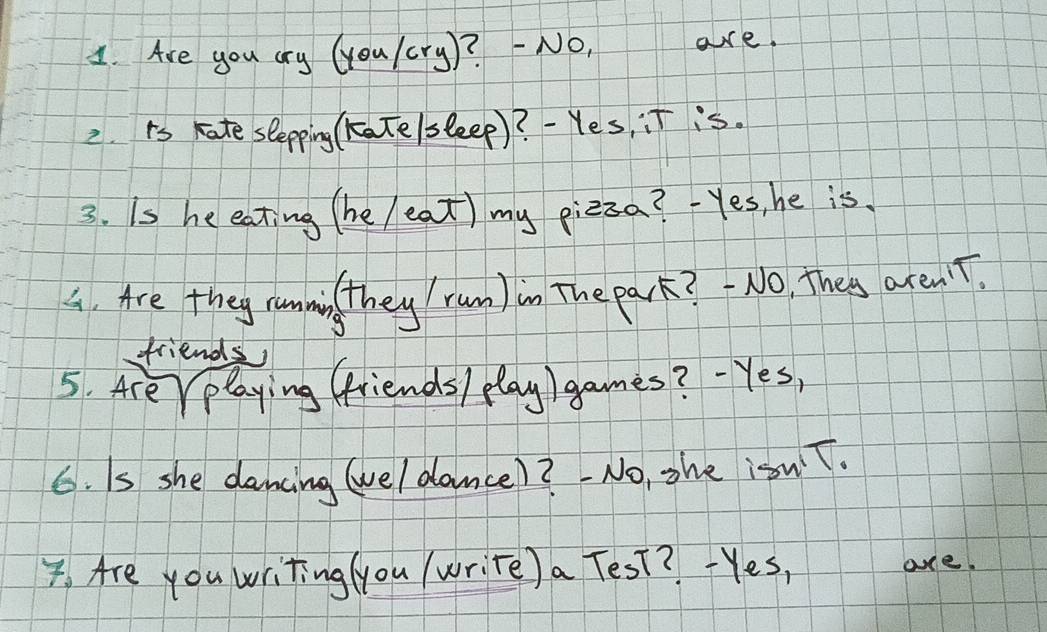 1. Are you cry (you/cry)? - No, are.
2. Is Kate slepping (Kate/sleep)? - Yes, it is.
3. Is he eating (he/eat) my pizza? - Yes, he is.
4. Are they running (they/run) in the park? - No, they aren't.
friends
5. Are playing (friends/play) games? - Yes,
6. Is she dancing (we/dance)? - No, she isn't.
7. Are you writing (you/write) a Test? - Yes, are.